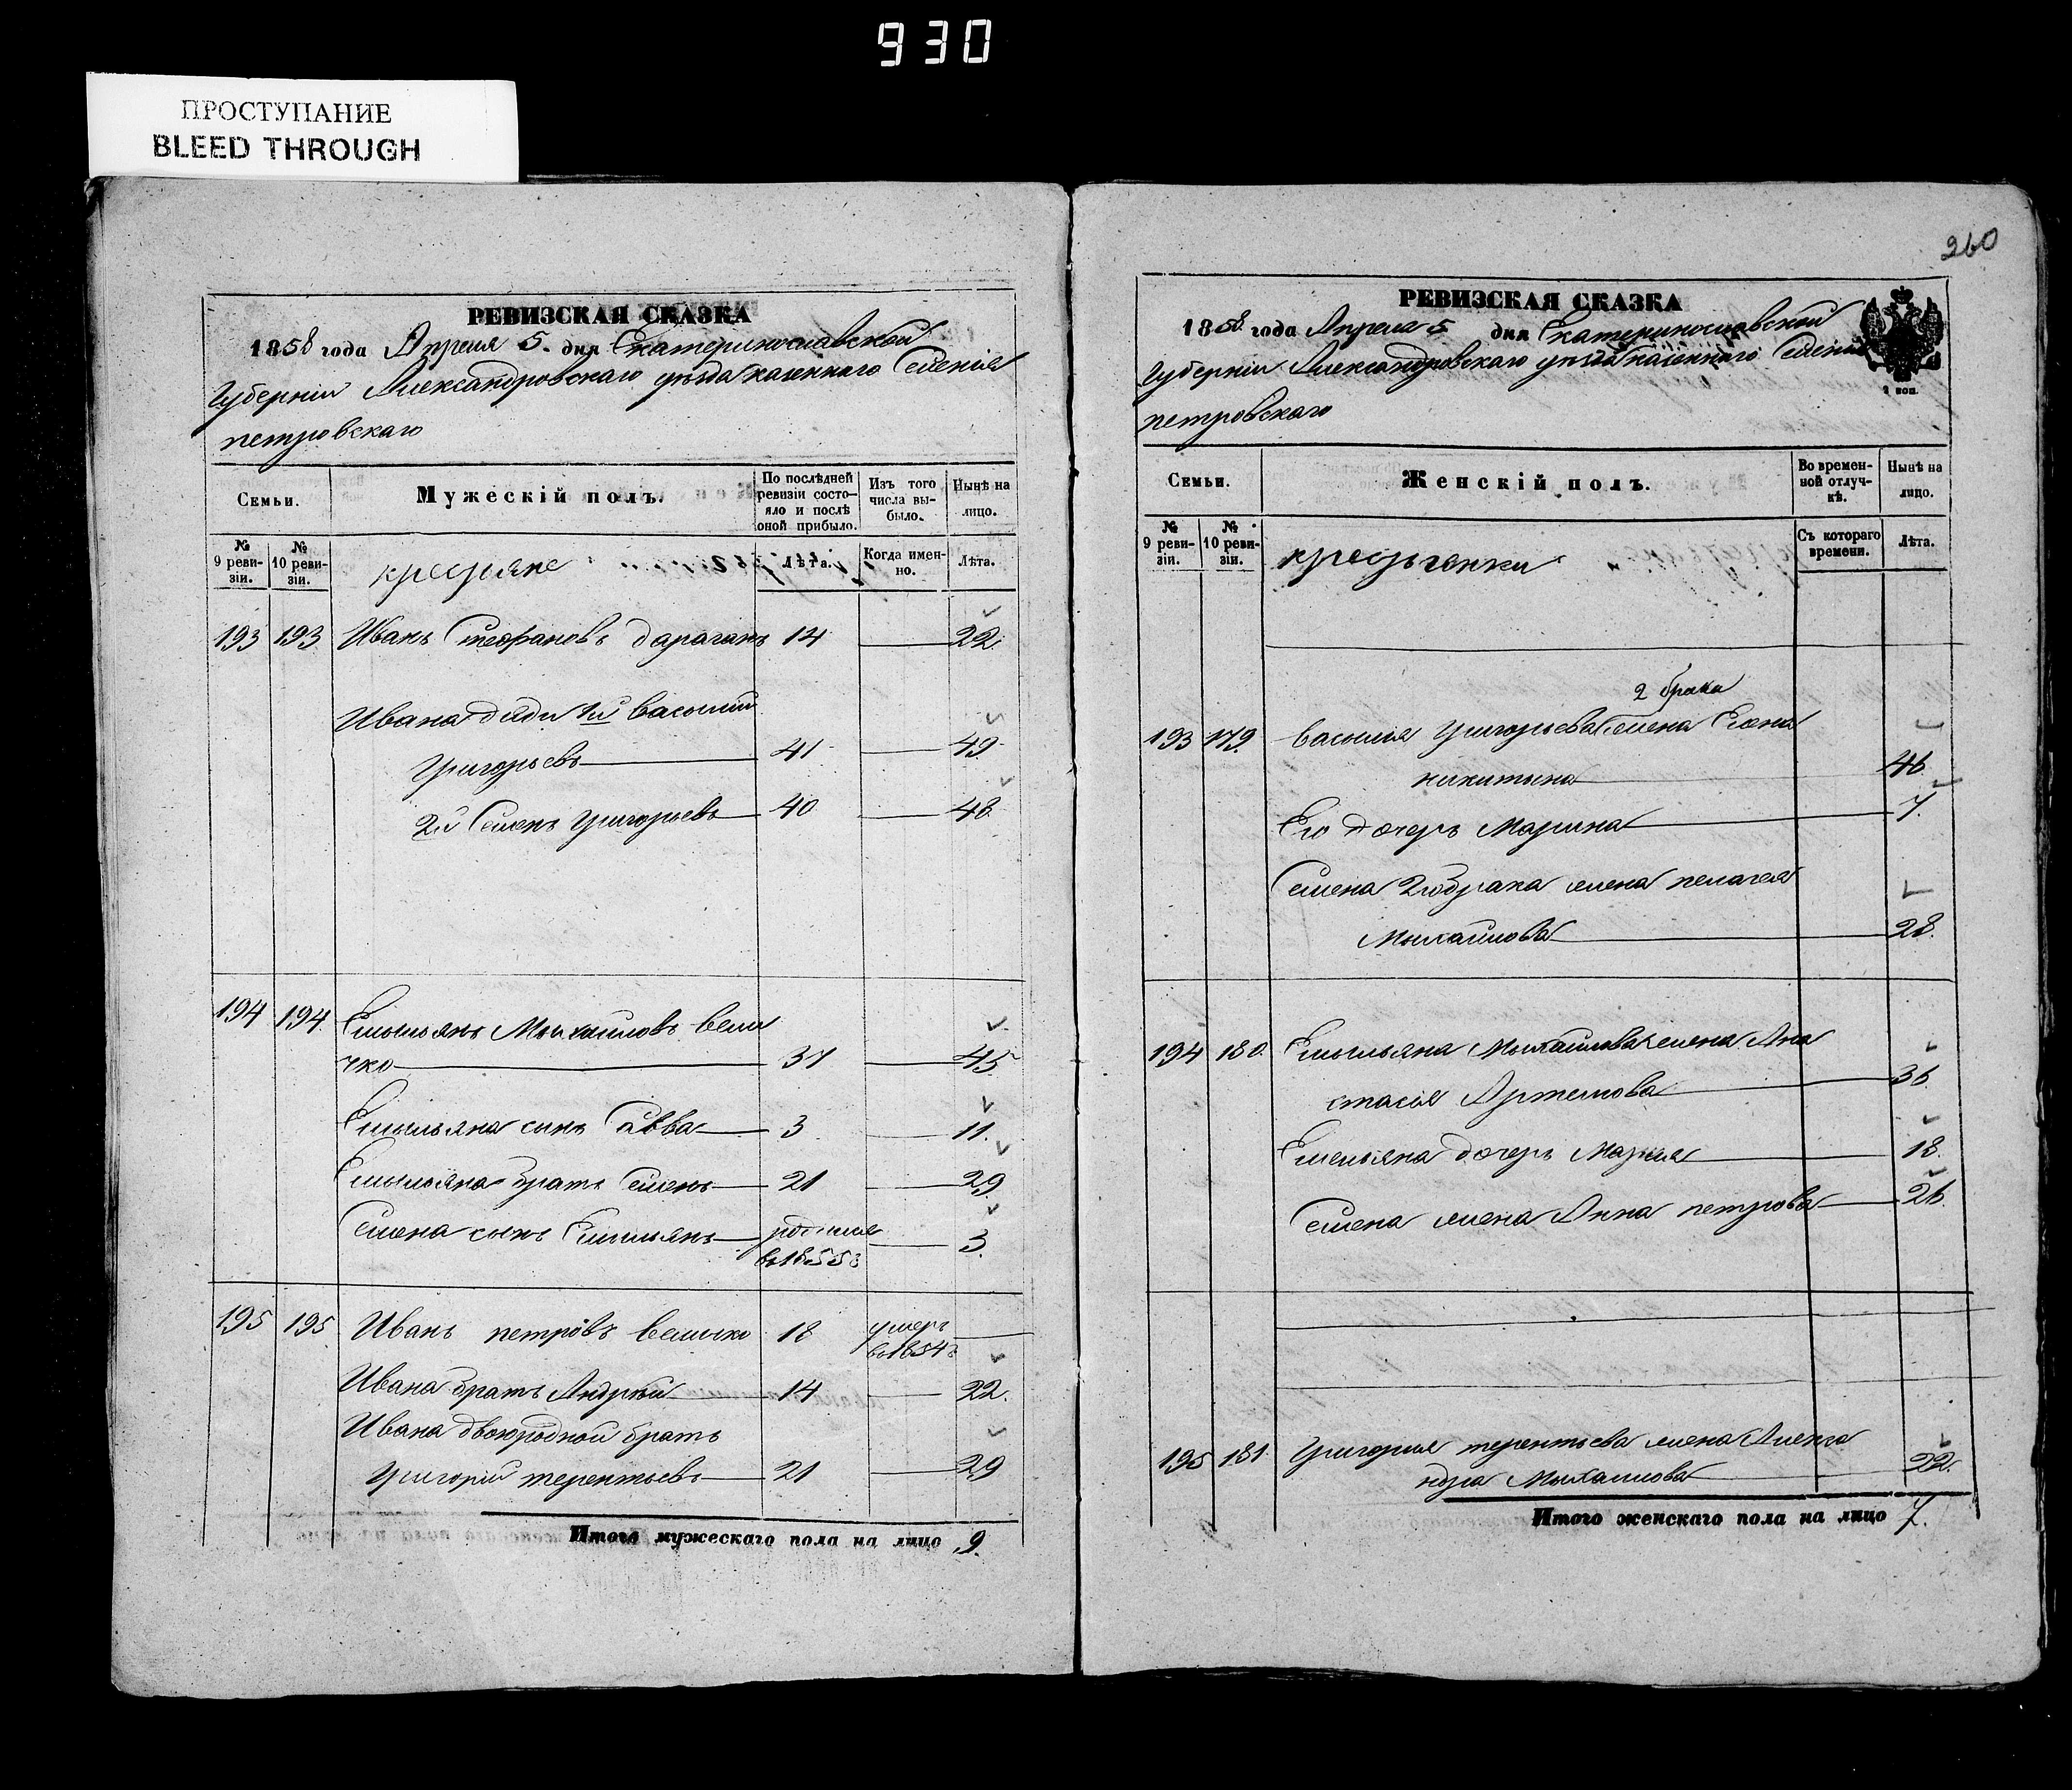 930
ПРОСТУПАНИЕ
BLEED THROUGH
РЕВИЗСКАЯ СКАЗКА
1858 года Апреля 5. дня Екатеринославской
Губерніи Александровскаго уѣзда казеннаго Селенія
петровскаго
Семьи.
Мужескій полъ.
По послѣдней ревизіи состояло и послѣ оной прибыло.
Изъ того числа выбыло.
Нынѣ на лицо.
№ 9 ревизіи.
№ 10 ревизіи.
крестьяне
Лѣта.
Когда именно.
Лѣта.
193 193 Иванъ Стефановъ дараганъ 14 22.
Ивана дяди 1й Василий
Григорьевъ 41 49.
2й Семенъ Григорьевъ 40 48
194 194 Емыльянъ Мыхайловъ вели
чко 37 45
Емыльяна сынъ Савва 3 11.
Емыльяна братъ Семенъ 21 29
Семена сынъ Емыльянъ родился 3.
в 1855 г
195 195 Иванъ петровъ величко 18 умеръ
в 1854 г
Ивана братъ Андрѣй 14 22.
Ивана двоюродной братъ
Григорій терентьевъ 21 29
Итого мужескаго пола на лицо 9.
260
РЕВИЗСКАЯ СКАЗКА
1858 года Апреля 5 дня Екатеринославской
Губерніи Александровскаго уѣзда казеннаго Селенія
петровскаго
2 коп.
Семьи.
Женскій полъ.
Во временной отлучкѣ.
Нынѣ на лицо.
№ 9 ревизіи.
№ 10 ревизіи.
крестьянки
Съ котораго времени.
Лѣта.
2 брака
193 179 Василия Григорьева жена Елена
никитина 46.
Его дочерь Марина 7.
Семена 2го брака жена пелагея
Мыхайлова 28.
194 180 Емыльяна Мыхайлова жена Ана
стасія Артемова 36
Емельяна дочерь Мария 18.
Семена жена Анна петрова 26.
195 181 Григория терентьева жена Алекса
ндра Мыхайлова 22.
Итого женскаго пола на лицо 7.